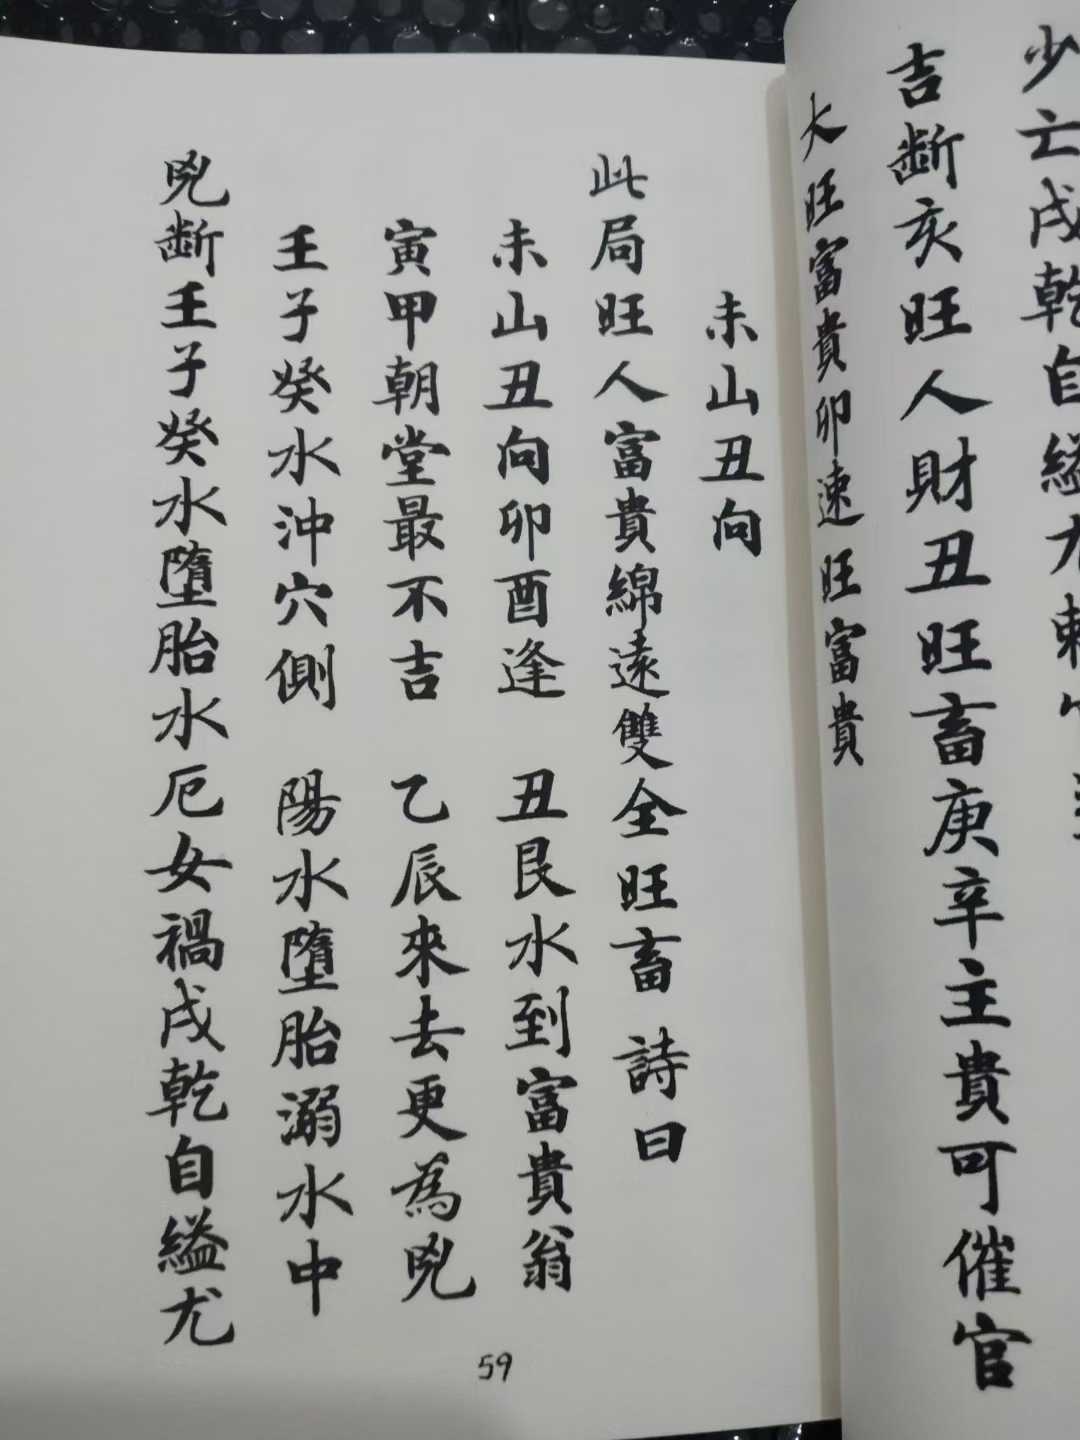 少亡戌乾自縊尤
吉斷亥旺人財丑旺畜庚辛主貴可催官
大旺富貴卯速旺富貴
未山丑向
此局旺人富貴綿遠雙全旺畜 詩曰
未山丑向卯酉逢 丑艮水到富貴翁
寅甲朝堂最不吉 乙辰來去更為兇
壬子癸水沖穴側 陽水墮胎溺水中
兇斷壬子癸水墮胎水厄女禍戌乾自縊尤
59